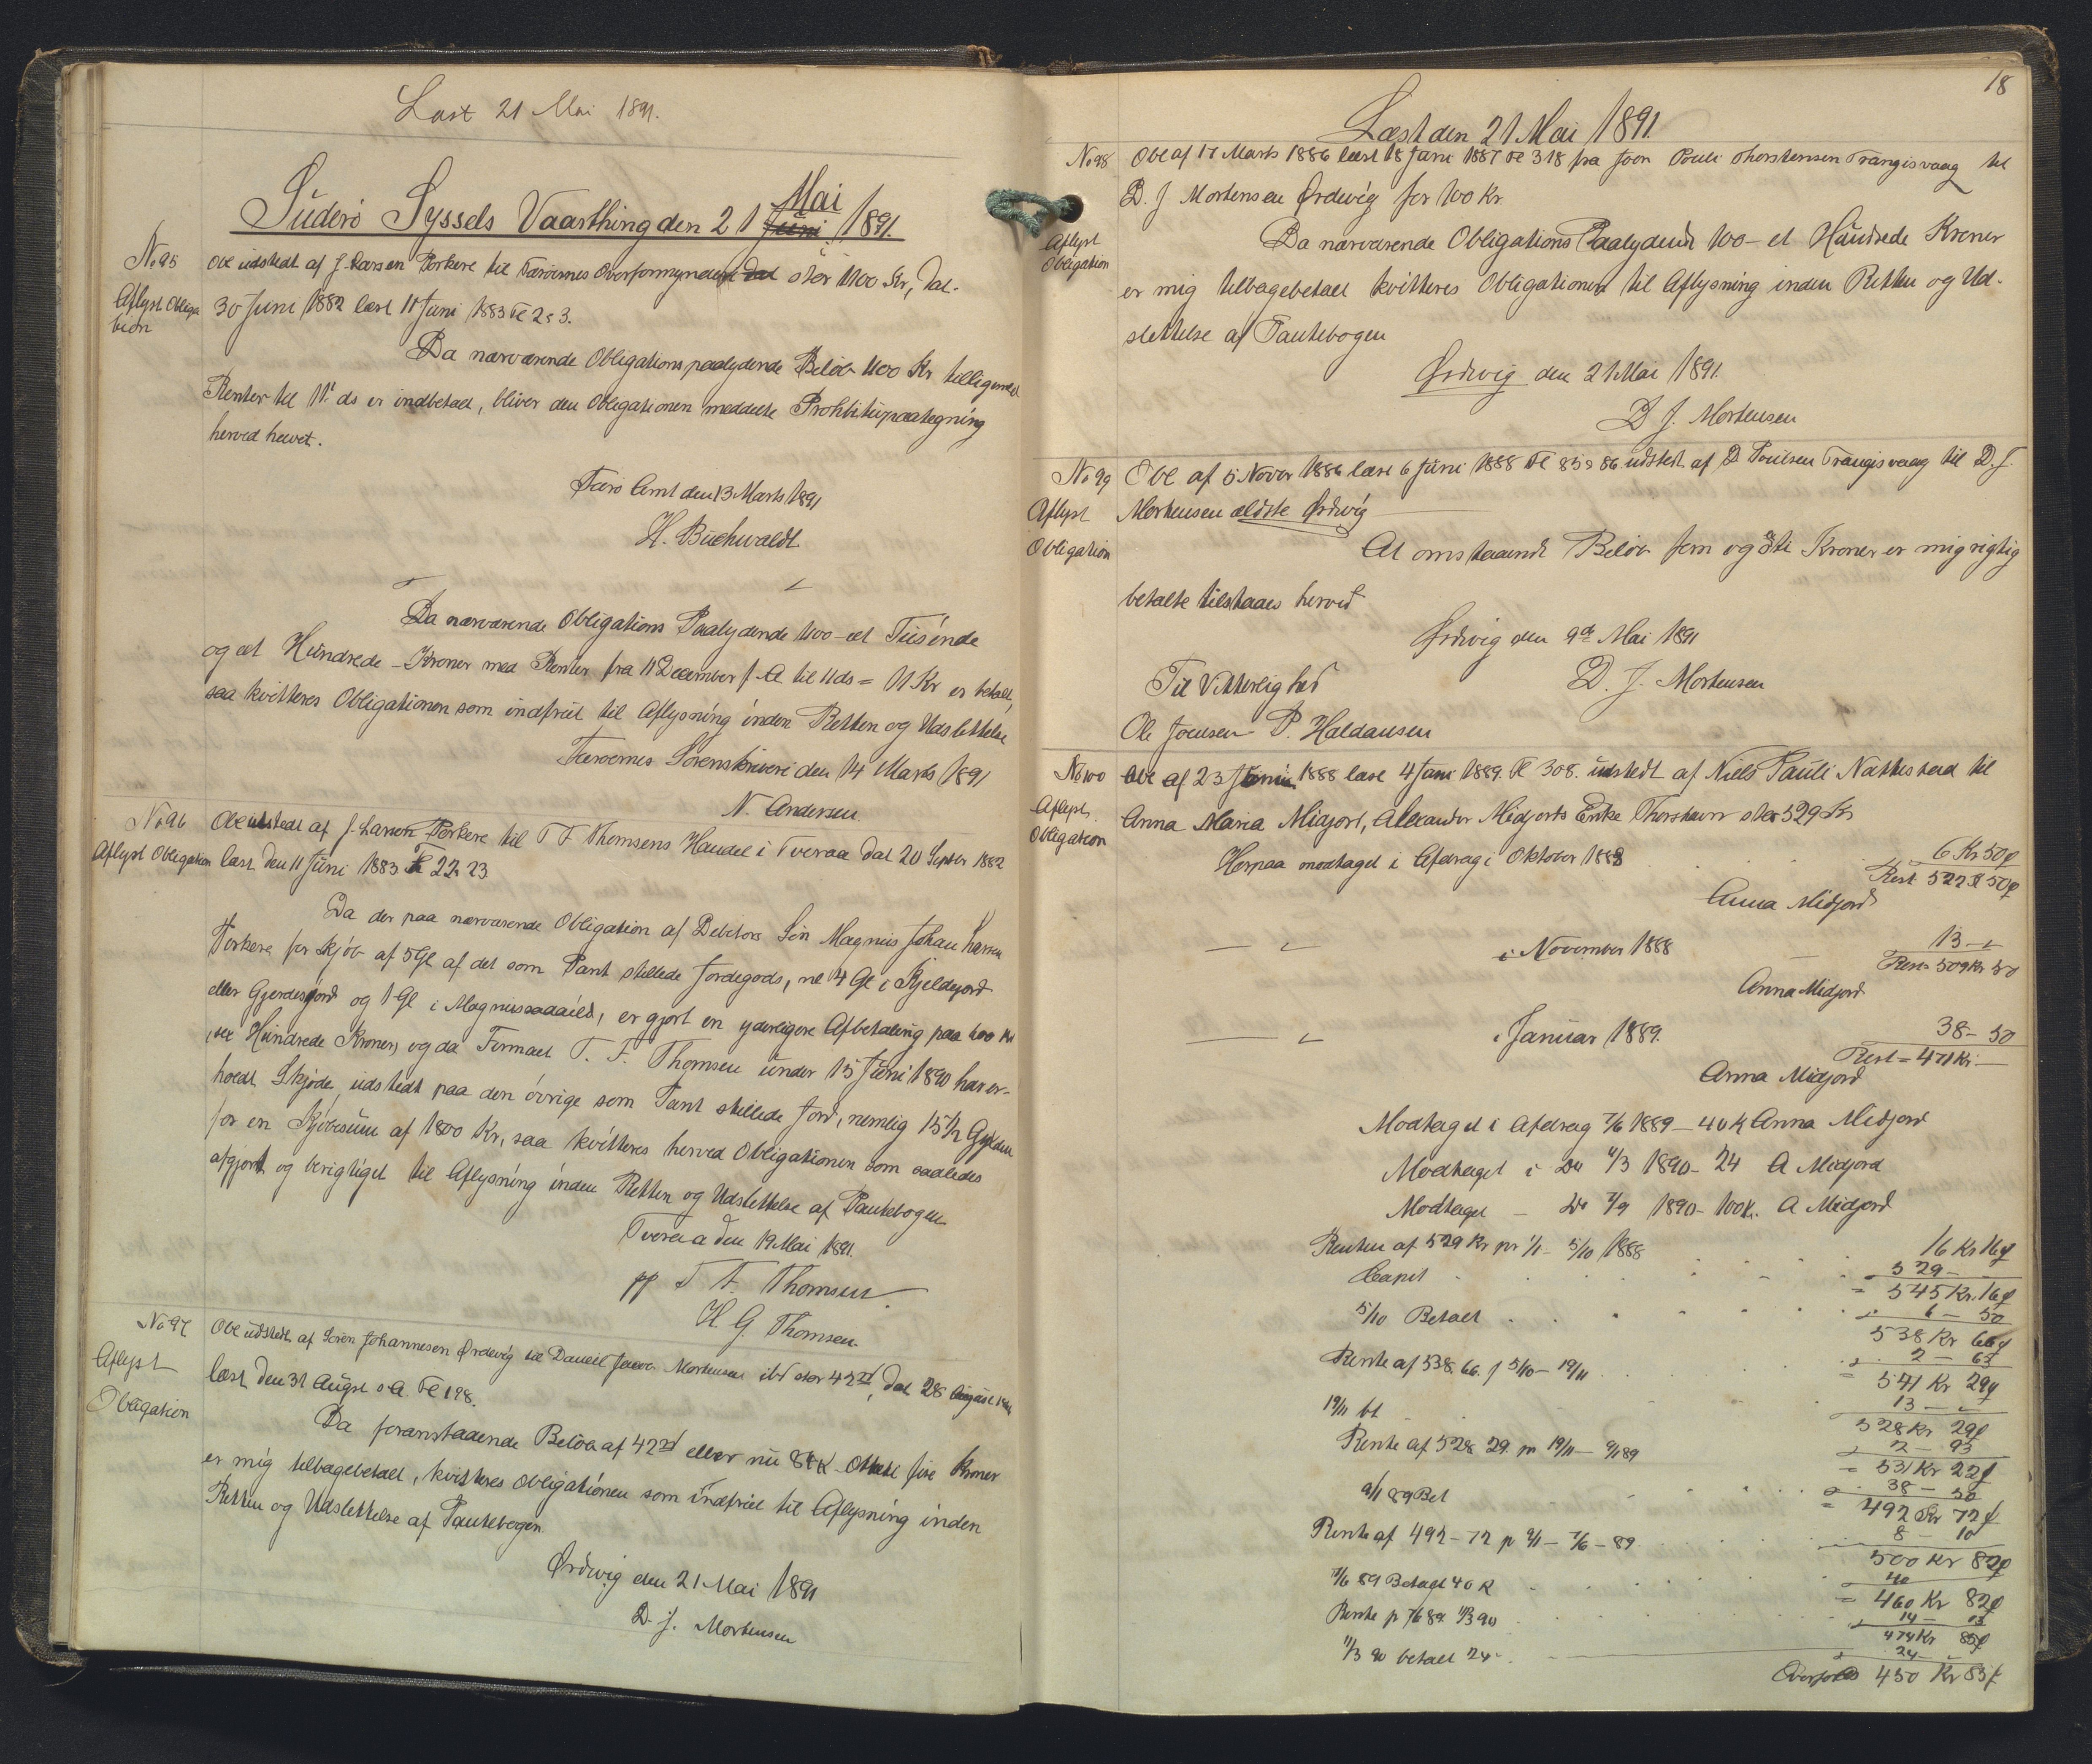 Læst 21 Mai 1891.
Suderø Syssels Vaarthing den 21 Juni Mai 1891.
No 95 Obl udstedt af J. Larsen Porkere til Færøernes Overformynderi Dat stor 1100 Kr, Dat.
Aflyst Obliga 30 Juni 1882 læst 11 Juni 1883 Fol 2 & 3.
tion
Da nærværende Obligations paalydende Beløb 1100 Kr tilligemed
Renter til 11' ds er indbetalt, bliver den Obligationen meddelte Prohibitivpaategning
herved hævet.
Færø Amt den 13 Marts 1891
H. Buchwaldt
Da nærværende Obligations Paalydende 1100 - et Tusinde
og et Hundrede - Kroner med Renter fra 11 December f. A til 11 ds = 11 Kr er betalt,
saa kvitteres Obligationen som indfriet til Aflysning inden Retten og Udslettelse
Færøernes Sorenskriveri den 14 Marts 1891
N. Andersen
No 96 Obl udstedt af J. Larsen Porkere til T F Thomsens Handel i Tveraa Dat 20 Septbr 1882
Aflyst Obligation læst den 11 Juni 1883 Fol 22 & 23.
Da der paa nærværende Obligation af Debitors Søn Magnus Johan Larsen
Porkere for Kjøb af 5 Gl af det som Pant stillede Jordegods, nl 4 Gl i Kjeldejord
eller Gjerdesjord og 1 Gl i, er gjort en yderligere Afbetaling paa 600 Kr
(sex Hundrede Kroner) og da Firmaet T. F. Thomsen under 15 Juni 1890 har er-
holdt Skjøde udstedt paa den øvrige som Pant stillede Jord, nemlig 15½ Gylden
for en Kjøbesum af 1800 Kr, saa kvitteres herved Obligationen som saaledes
afgjort og berigtiget til Aflysning inden Retten og Udslettelse af Pantebogen
Tveraa den 19 Mai 1891.
pp T. F. Thomsen
H. G. Thomsen
No 97 Obl udstedt af Soren Johannesen Ørdevig til Daniel Jacob Mortensen ibd stor 42 rd, Dat 28 August
Aflyst læst den 31 Augst s. A. Fol 198.
Obligation
Da foranstaaende Beløb af 42 rd eller nu 84 K - Otteti fire Kroner
er mig tilbagebetalt, kvitteres Obligationen som indfriet til Aflysning inden
Retten og Udslettelse af Pantebogen.
Ørdvig den 21 Mai 1891
D. J. Mortensen
18
Læst den 21 Mai 1891.
No 98 Obl af 17 Marts 1886 læst 18 Juni 1887 Fol 318 fra Joen Pouli Thorstensen Trangisvaag til
D. J Mortensen Ørdevig for 100 Kr
Aflyst
Obligation
Da nærværende Obligations Paalydende 100 - et Hundrede Kroner
er mig tilbagebetalt kvitteres Obligationen til Aflysning inden Retten og Ud-
slettelse af Pantebogen
Ørdvig den 21 Mai 1891.
D J. Mortensen
No 99 Obl af 5 Novbr 1886 læst 6 Juni 1888 Fol 85 & 86 udstedt af D Poulsen Trangisvaag til D. J.
Aflyst Mortensen ældste Ørdvig
Obligation
At omstaaende Beløb fem og otti Kroner er mig rigtig
betalte tilstaaes herved
Ørdvig den 9de Mai 1891
Til Vitterlighed D. J. Mortensen
Ole Joensen P. Haldansen
No 100 Obl af 23 Juni 1888 læst 4 Juni 1889. Fol 308. udstedt af Niels Pauli Nattestad til
Aflyst Anna Maria Midjord, Alexander Midjords Enke Thorshavn stor 529 Kr
Obligation
Herpaa modtaget i Afdrag i Oktober 1888 6 Kr 50 ø
Rest 522 K 50 ø
Anna Midjord
i November 1888 13 - "
Rest 509 Kr 50
Anna Midjord
i Januar 1889. 38 - 50
Rest = 471 Kr. -
Anna Midjord
Modtaget i Afdrag 7/6 1889 - 40 K Anna Midjord
Modtaget i Do 11/3 1890 - 24 A Midjord
Modtaget - Do 7/9 1890 - 100 K. A Midjord
Renten af 529 Kr pr 1/1 - 5/10 1888 16 Kr 16 ø
Capit 529 -
= 545 Kr. 16 ø
5/10 Betalt 6 - 50
538 Kr 66 ø
Rente af 538.66. f 5/10 - 19/11 2 - 63
= 541 Kr 29 ø
19/11 bt 13 - "
528 Kr 29 ø
Rente af 528.29. pr 19/11 - 9/1 89 2 - 93
= 531 Kr 22 ø
9/1 89 Bet 38 - 50
= 492 Kr 72 ø
Rente af 492 - 72 p 9/1 - 7/6 - 89 8 - 10
500 Kr 82 ø
7/6 89 Betalt 40 K 40
= 460 Kr 82 ø
Rente p 7/6 89 11/3 90 14 - 03
474 Kr 85 ø
11/3 90 betalt 24 - 24 -
Overføres 450 Kr 85 ø